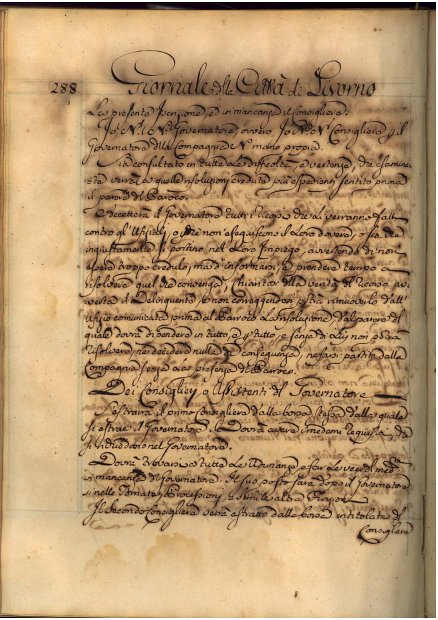 288 Giornale della Città di Livorno
La presente Penzione, ed in mancanza il Consigliere.
Io N: N: Governatore, ovvero, Io N: N: Consigliere
Governatore della Compagnia N: mano propria.
Sia consultato in tutte le difficoltà, e vertenze, che
verrà a quelle risoluzioni credute più espedienti sentito prima
il parere del Paroco.
il Governatore tutti i ricorsi che si verranno
contro gl'Ufiziali, o che non eseguiscono il loro dovere, o che
ingiustamente si portino nel Loro Impiego, avvertendo di non
essere troppo credulo, ma d'informarsi, e prendere tempo a
risolvere quel che convenga, chiarito della verità il ricorso
il Delinquente, se non correggendosi potrà rimuoverlo dall'
ufizio comunicata prima al Paroco la risoluzione, dal parere del
quale dovrà dipendere in tutto, e tutto, e senza di lui non potrà
risolvere, ne decidere nulla di conseguenza, ne
Compagnia senza la presenza del Paroco.
Dei Consiglieri, o Assistenti del Governatore
Si estrarrà il primo consigliere dalla borsa stessa dalla quale
si estrae il Governatore, e Dovrà avere i medesimi requisiti
nel Governatore.
Dovrà trovarsi a tutte le Adunanze, e fare le veci del
in mancanza del Governatore. Il suo posto sarà dopo il Governatore
sì nelle Tornate, Processioni, e simili altre Funzioni.
Il secondo consigliere verrà estratto dalle borse intitolate del
Consigliere